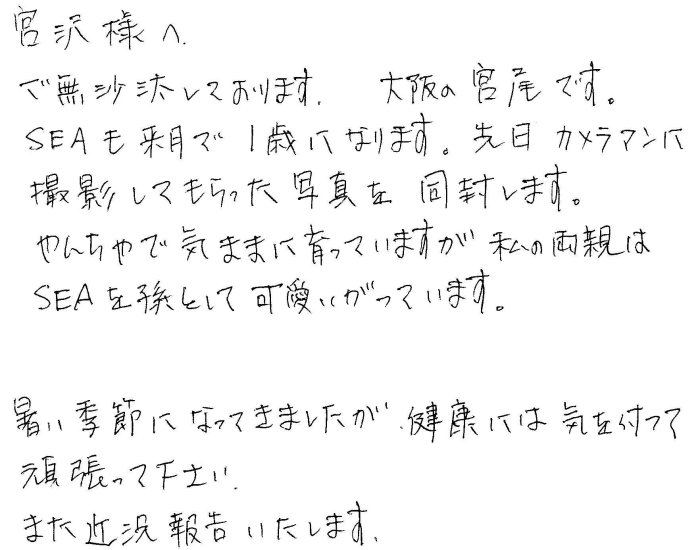 宮沢様へ.
ご無沙汰しております. 大阪の宮尾です。
SEAも来月で1歳になります。先日カメラマンに
撮影してもらった写真を同封します。
やんちゃで気ままに育っていますが私の両親は
SEAを孫として可愛いがっています。
暑い季節になってきましたが.健康には気を付って
頑張って下さい.
また近況報告いたします.